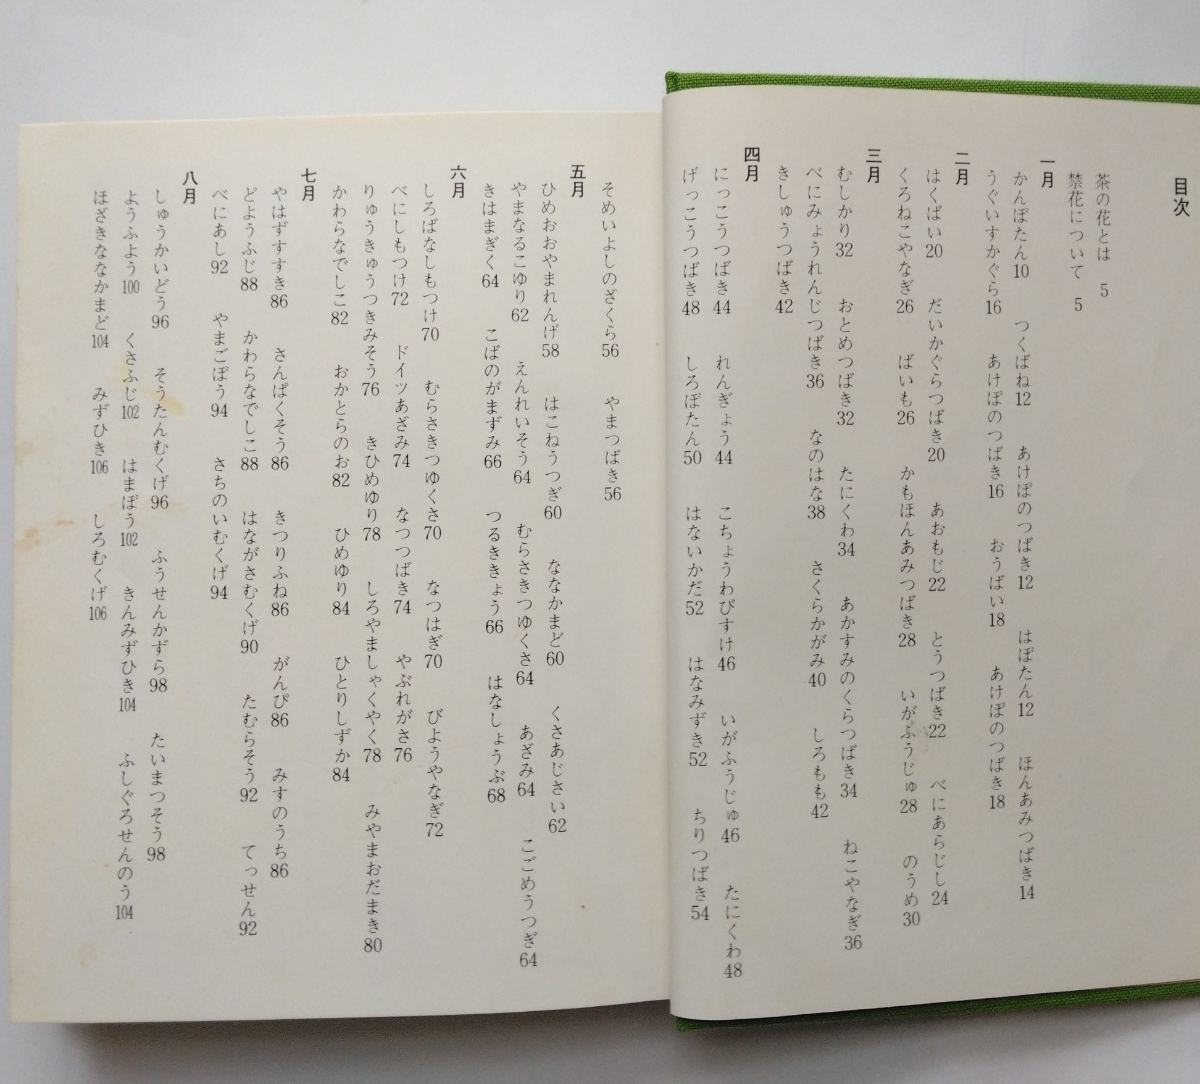 目次
茶の花とは 5
禁花について 5
一月
かんぼたん10 つくばね12 あけぼのつばき12 はぼたん12 ほんあみつばき14
うぐいすかぐら16 あけぼのつばき16 おうばい18 あけぼのつばき18
二月
はくばい20 だいかぐらつばき20 あおもじ22 とうつばき22 べにあらじし24
くろねこやなぎ26 ばいも26 かもほんあみつばき28 いがふうじゅ28 のうめ30
三月
むしかり32 おとめつばき32 たにくわ34 あかすみのくらつばき34 ねこやなぎ36
べにみょうれんじつばき36 なのはな38 さくらかがみ40 しろもも42
きしゅうつばき42
四月
にっこうつばき44 れんぎょう44 こちょうわびすけ46 いがふうじゅ46 たにくわ48
げっこうつばき48 しろぼたん50 はないかだ52 はなみずき52 ちりつばき54
そめいよしのざくら56 やまつばき56
五月
ひめおおやまれんげ58 はこねうつぎ60 ななかまど60 くさあじさい62
やまなるこゆり62 えんれいそう64 むらさきつゆくさ64 あざみ64 こごめうつぎ64
きはまぎく64 こばのがまずみ66 つるききょう66 はなしょうぶ68
六月
しろばなしもつけ70 むらさきつゆくさ70 なつはぎ70 びようやなぎ72
べにしもつけ72 ドイツあざみ74 なつつばき74 やぶれがさ76
りゅうきゅうつきみそう76 きひめゆり78 しろやましゃくやく78 みやまおだまき80
かわらなでしこ82 おかとらのお82 ひめゆり84 ひとりしずか84
七月
やはずすすき86 さんぱくそう86 きつりふね86 がんぴ86 みすのうち86
どようふじ88 かわらなでしこ88 はながさむくげ90 たむらそう92 てっせん92
べにあし92 やまごぼう94 さちのいむくげ94
八月
しゅうかいどう96 そうたんむくげ96 ふうせんかずら98 たいまつそう98
ようふよう100 くさふじ102 はまぼう102 きんみずひき104 ふしぐろせんのう104
ほざきななかまど104 みずひき106 しろむくげ106